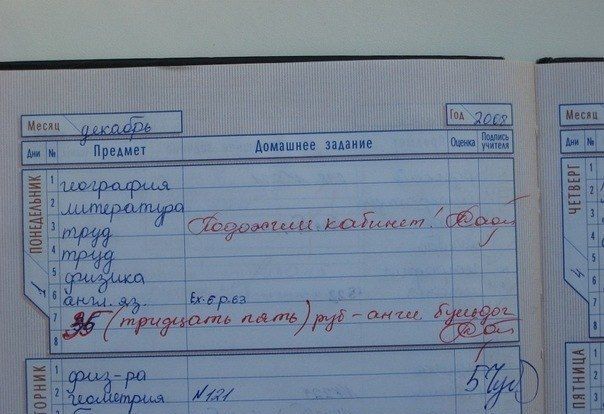 Месяц декабрь Год 2008 Месяц
Дни № Предмет Домашнее задание Оценка Подпись учителя Дни №
ПОНЕДЕЛЬНИК
1
1 география
2 литература
3 труд Подожгли кабинет!
4 труд
5 физика
6 англ. яз. Ex. 6 p. 63
7 35 (тридцать пять) руб - англ. бульдог
8
ТОРНИК
1 физ-ра
2 геометрия №121 5
ЧЕТВЕРГ
4
1
2
3
4
5
6
7
8
ПЯТНИЦА
1
2
3